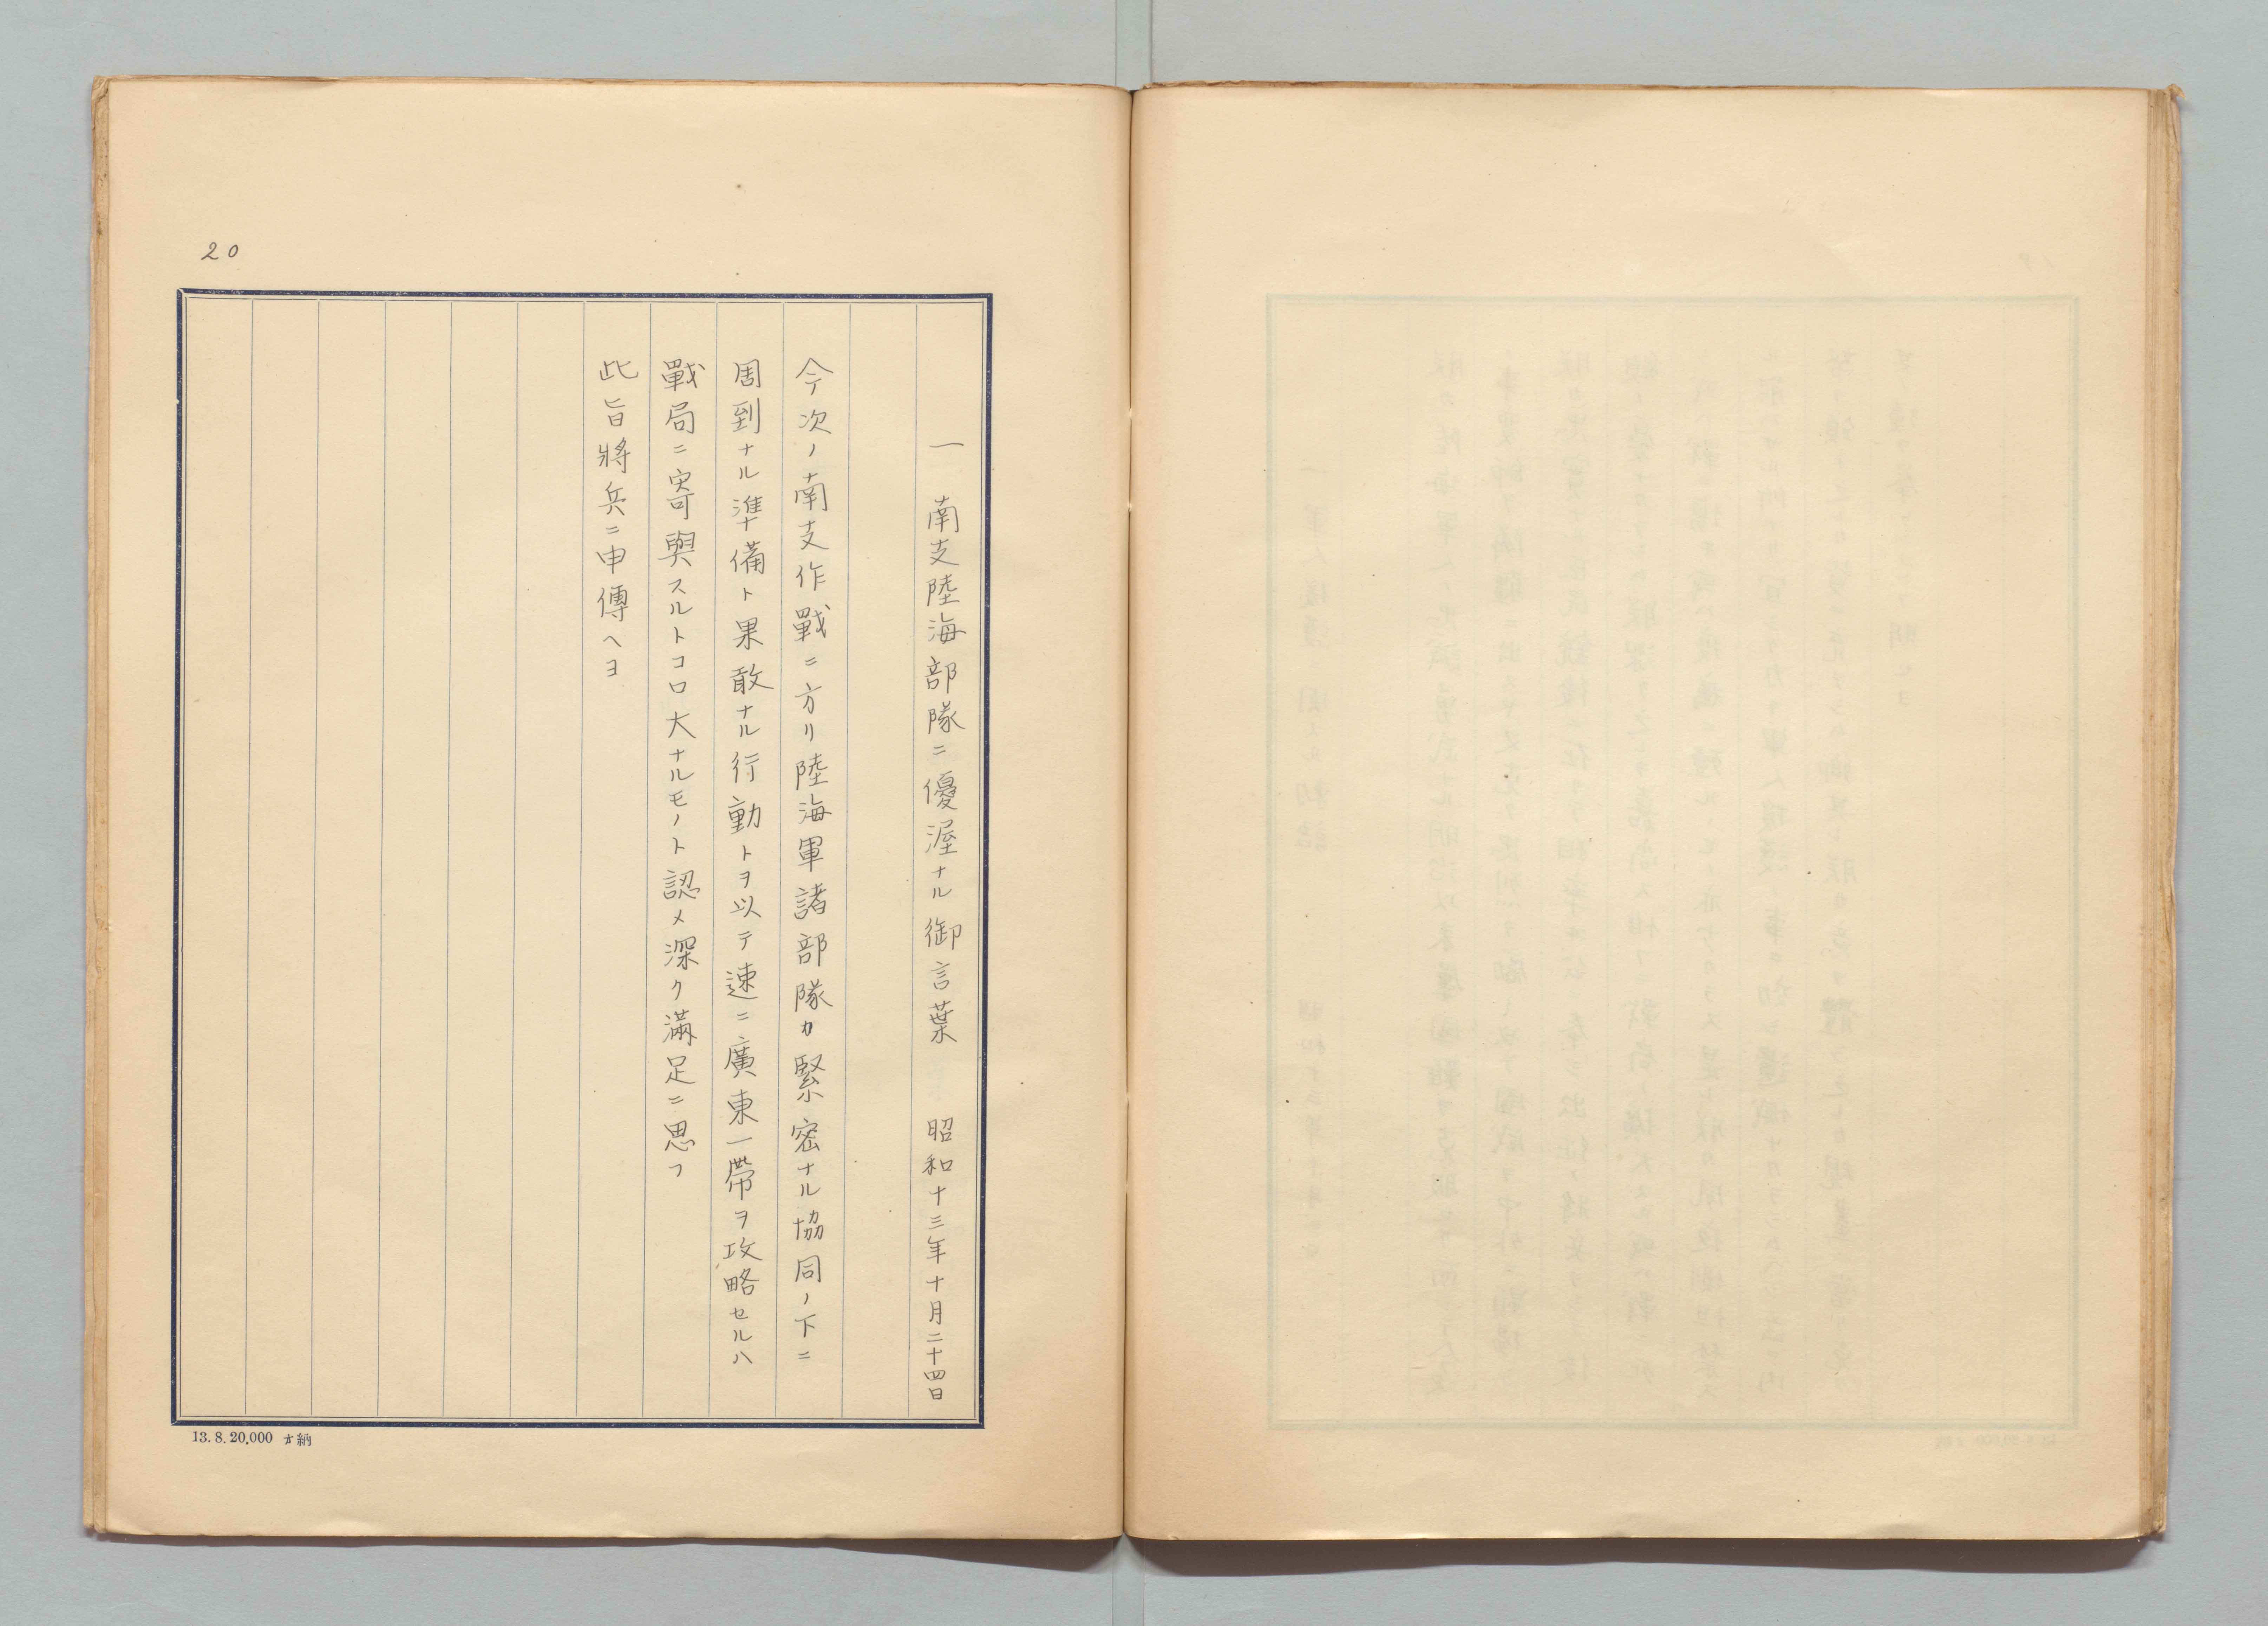 20
一 南支陸海部隊ニ優渥ナル御言葉 昭和十三年十月二十四日
今次ノ南支作戰ニ方リ陸海軍諸部隊カ緊密ナル協同ノ下ニ
周到ナル準備ト果敢ナル行動トヲ以テ速ニ廣東一帶ヲ攻略セルハ
戰局ニ寄與スルトコロ大ナルモノト認メ深ク滿足ニ思フ
此旨將兵ニ申傳ヘヨ
13.8.20,000 納